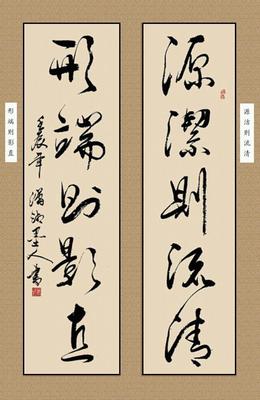 源洁则流清
源潔则流清
形端则影直
壬辰年 潇湘墨人書
形端则影直